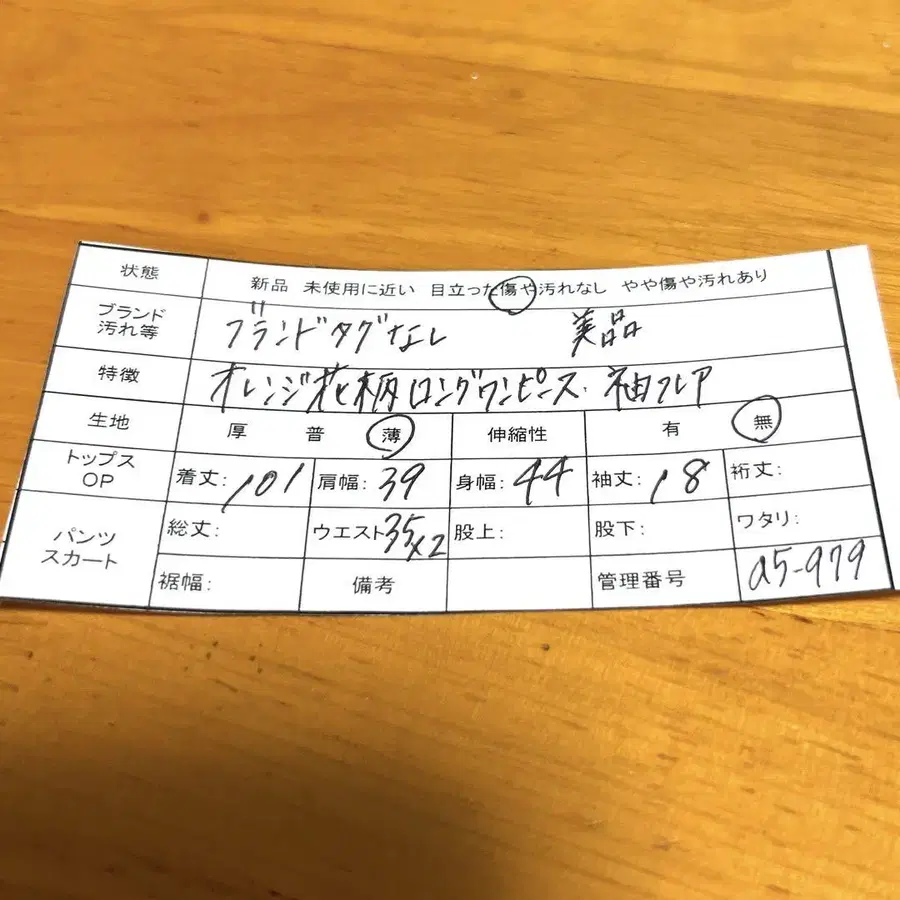 状態 新品 未使用に近い 目立った傷や汚れなし やや傷や汚れあり
ブランド 汚れ等 ブランドタグなし 美品
特徴 オレンジ花柄ロングワンピース. 袖フレア
生地 厚 普 薄 伸縮性 有 無
トップス OP 着丈: 101 肩幅: 39 身幅: 44 袖丈: 18 裄丈:
パンツ スカート 総丈: ウエスト 35×2 股上: 股下: ワタリ:
裾幅: 備考 管理番号 a5-979